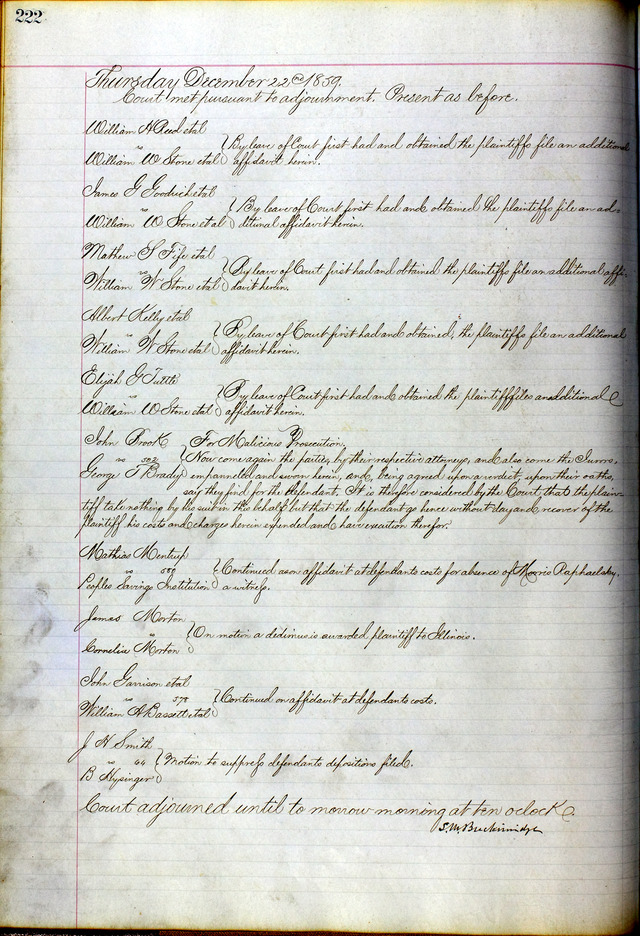 222
Thursday December 22nd 1859.
Court met pursuant to adjournment. Present as before.
William H Reed etal
vs } By leave of Court first had and obtained the plaintiffs file an additional
William W Stone etal } affidavit herein.
James G Goodrich etal
vs } By leave of Court first had and obtained the plaintiffs file an ad-
William W Stone etal } ditional affidavit herein.
Mathew S Fife etal
vs } By leave of Court first had and obtained the plaintiffs file an additional affi-
William W Stone etal } davit herein.
Albert Kelly etal
vs } By leave of Court first had and obtained, the plaintiffs file an additional
William W Stone etal } affidavit herein.
Elijah G Tuttle
vs } By leave of Court first had and obtained the plaintiff files an additional
William W Stone etal } affidavit herein.
John Brook For Malicious Prosecution.
vs 502 } Now come again the parties, by their respective attorneys, and also come the Jurors,
George T Brady } empannelled and sworn herein, and, being agreed upon a verdict, upon their oaths,
say they find for the defendant. It is therefore considered by the Court, that the plain-
tiff take nothing by his suit in this behalf but that the defendant go hence without day and recover of the
plaintiff his costs and charge herein expended and have execution therefor.
Mathias Mentrup
vs } Continued as on affidavit at defendants costs for absence of Morris Raphaelsky,
Peoples Savings Institution } a witness.
James Morton
vs } On motion a dedimus is awarded plaintiff to Illinois.
Cornelia Morton
John Garrison etal
vs 578 } Continued on affidavit at defendants costs.
William A Bassett etal
J H Smith
vs 64 } Motion to suppress defendants depositions filed.
B Hysinger
Court adjourned until to morrow morning at ten oclock.
S. M. Breckinridge